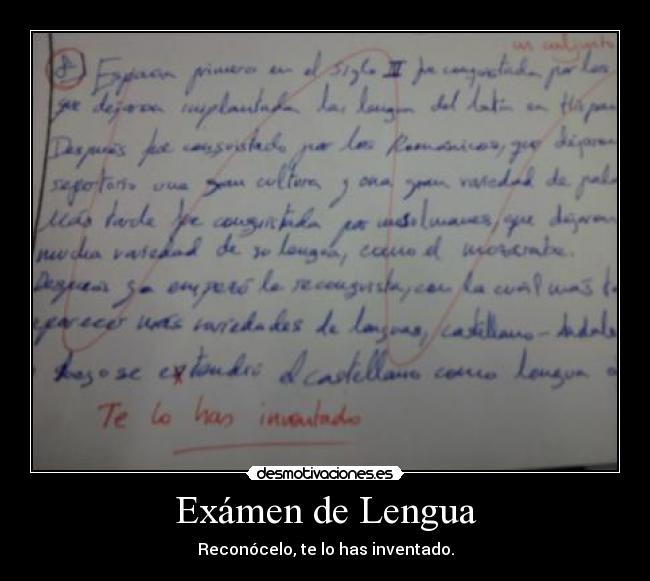 un conjunto
8 España primero en el siglo II fue conquistada por los
que dejaron implantada la lengua del latín en Hispan
Después fue conquistado por los Románicos, que dejaron
una gran cultura y una gran variedad de pala
Más tarde fue conquistada por musulmanes, que dejaron
mucha variedad de su lengua, como el mozarabe.
Después ya empezó la reconquista, con la cual más t
aparecer más variedades de lenguas, castellano-
luego se extendió el castellano como lengua o
Te lo has inventado
desmotivaciones.es
Exámen de Lengua
Reconócelo, te lo has inventado.